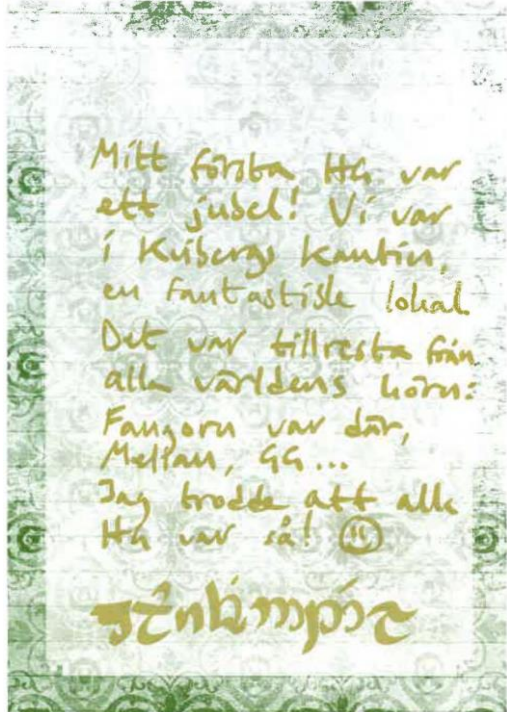 Mitt första HG var
ett jubel! Vi var
i Kvibergs Kantin,
en fantastisk lokal
Det var tillresta från
alla världens hörn:
Fangorn var där,
Mellan, GG...
Jag trodde att alla
HG var så!